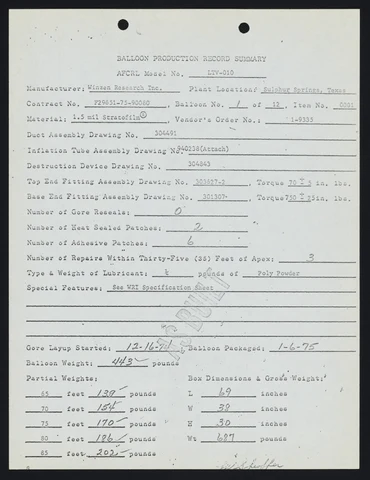 BALLOON PRODUCTION RECORD SUMMARY
AFCRL Model No. LTV-010
Manufacturer: Winzen Research Inc. Plant Location: Sulphur Springs, Texas
Contract No. F29651-75-90080, Balloon No. 1 of 12, Item No. 0001
Material: 1.5 mil Stratofilm®, Vendor's Order No.: 1-9335
Duct Assembly Drawing No. 304491
Inflation Tube Assembly Drawing No. (Attach)
Destruction Device Drawing No. 304643
Top End Fitting Assembly Drawing No. Torque 70 ± 5 in. lbs.
Base End Fitting Assembly Drawing No. Torque in. lbs.
Number of Gore Reseals: 0
Number of Heat Sealed Patches: 2
Number of Adhesive Patches: 6
Number of Repairs Within Thirty-Five (35) Feet of Apex: 3
Type & Weight of Lubricant: pounds of Poly Powder
Special Features: See WRI Specification Sheet
AS BUILT
Gore Layup Started: 12-16-74 Balloon Packaged: 1-6-75
Balloon Weight: 443 pounds
Partial Weights: Box Dimensions & Gross Weight:
65 feet 138 pounds L 69 inches
70 feet 154 pounds W 38 inches
75 feet 170 pounds H 30 inches
80 feet 186 pounds Wt 687 pounds
85 feet 202 pounds